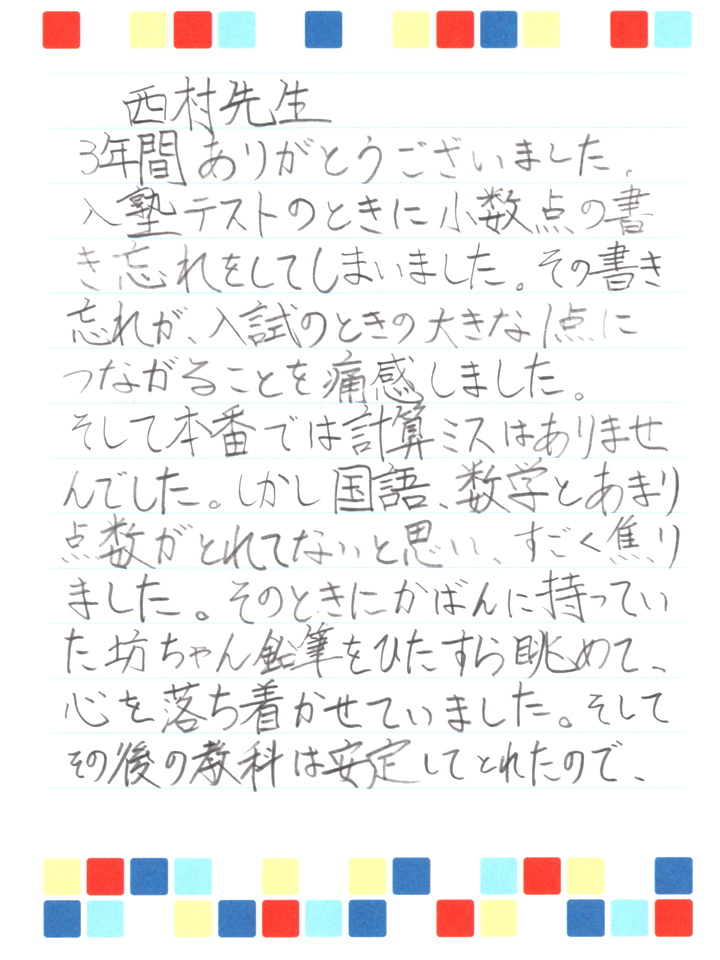 西村先生
3年間ありがとうございました。
入塾テストのときに小数点の書
き忘れをしてしまいました。その書き
忘れが、入試のときの大きな1点に
つながることを痛感しました。
そして本番では計算ミスはありませ
んでした。しかし国語、数学とあまり
点数がとれてないと思い、すごく焦り
ました。そのときにかばんに持ってい
た坊ちゃん鉛筆をひたすら眺めて、
心を落ち着かせていました。そして
その後の教科は安定してとれたので、